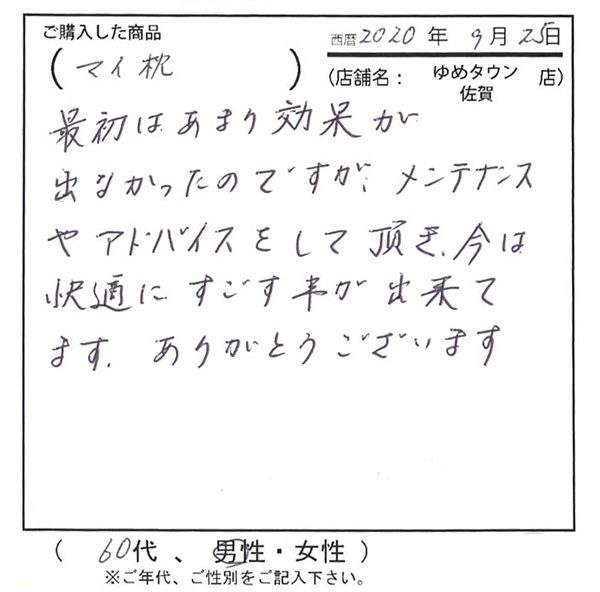 ご購入した商品
(マイ枕)
西暦2020年 9月25日
(店舗名: ゆめタウン佐賀 店)
最初はあまり効果が
出なかったのですが、メンテナンス
やアドバイスをして頂き、今は
快適にすごす事が出来て
ます。ありがとうございます
( 60代 、 男性・女性 )
※ご年代、ご性別をご記入下さい。